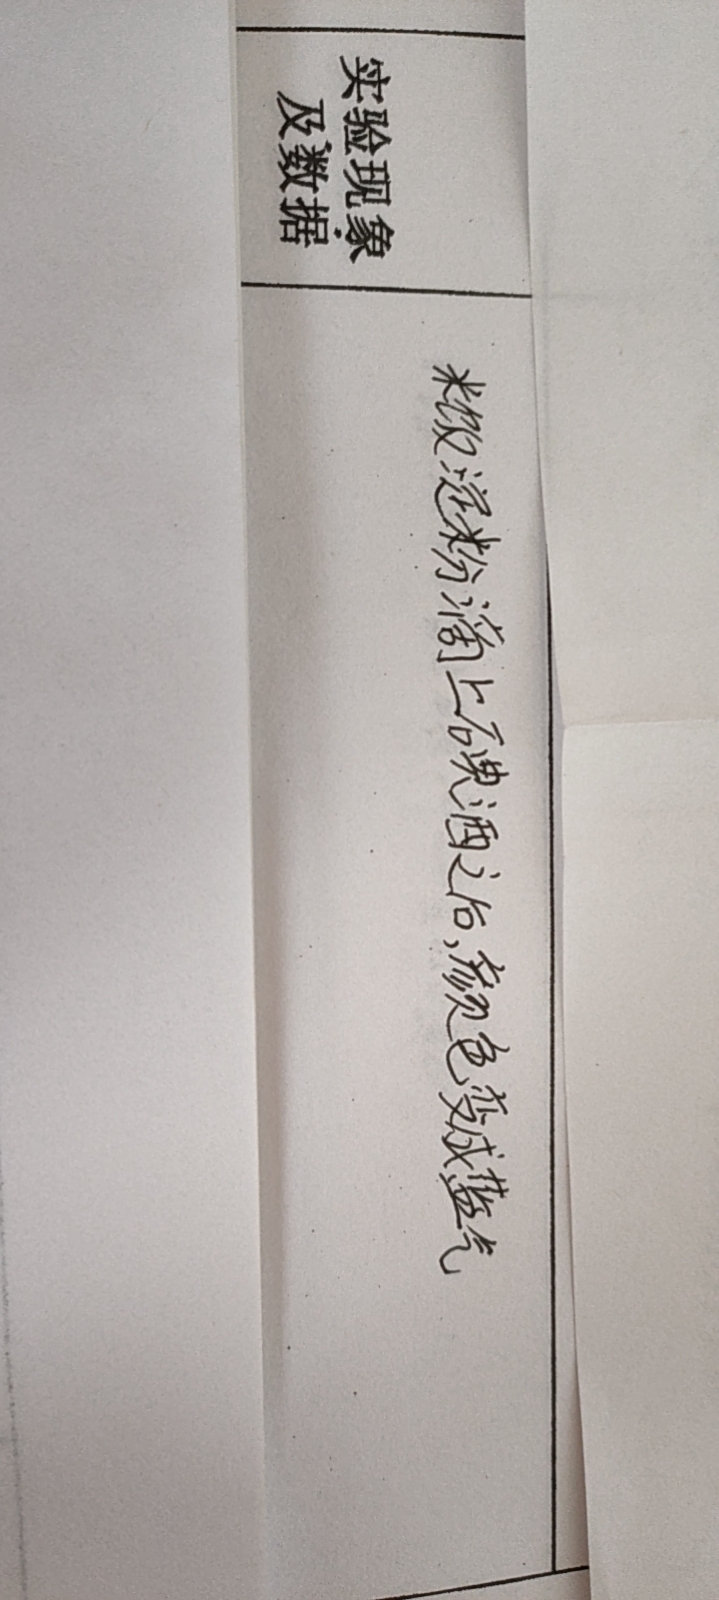 实验现象
及数据
米饭淀粉滴上碘酒之后,颜色变成蓝气